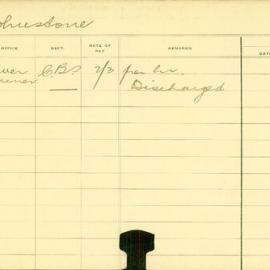 ohnstone
OFFICE DEPT. RATE OF PAY REMARKS DAT
wer C.B. 2/3 per hr.
Discharged